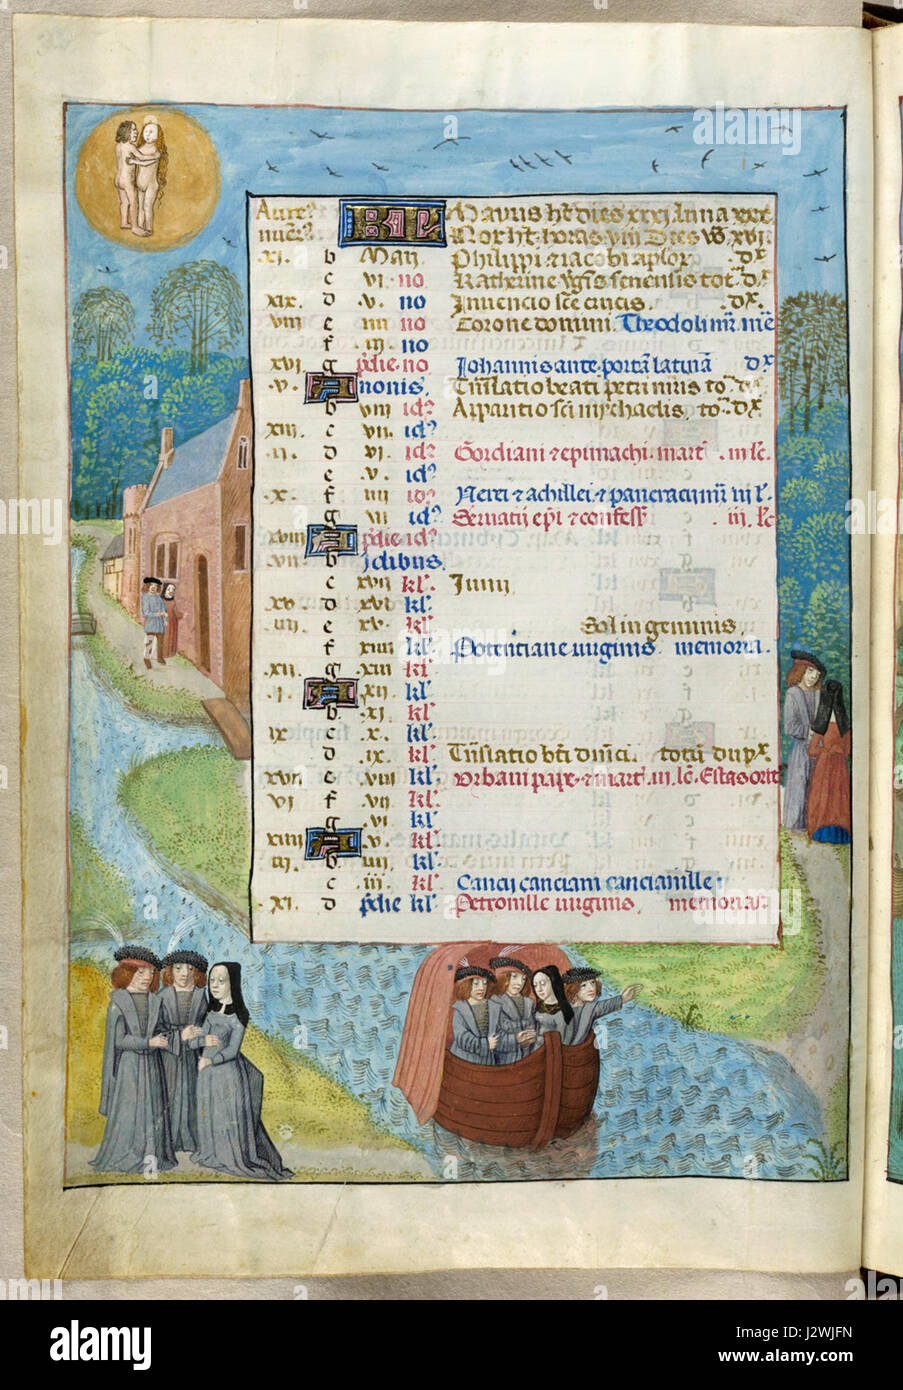 Aure⁹ KL Mayus ht dies xxxi luna xxx
numer⁹ Nox ht horas viii Dies v̄o xvi
xi. b Maii Philippi et iacobi aplor dx
c vi no Katherine v̄gis senensis tot dx
xix. d v. no Inuencio scē crucis. dx.
viii e iiii no Corone domini. Theodoli mr. me
f iii no
xvi g pdie no Johannis ante portā latinā dx
v. A nonis Tnslatio beati petri mris to dx
b viii id Apparitio sci mychaelis to dx
xiii c vii. id
ii. d vi. id Gordiani et epimachi mart iii lc.
e v. id
x. f iiii id Nerei et achillei et pancracii mr iii l.
g iii id Seruatii epi et confess iii. lc
xviii A pdie id
vii. b idibus.
c xvii kl Junii
xv d xvi kl
iiii. e xv. kl Sol in geminis.
f xiiii kl. Potentiane uirginis memoria.
xii. g xiii kl
i. A xii. kl.
b. xi. kl
ix c x. kl.
d ix. kl Tnslatio bti dnici totū dupx
xvii e viii kl. Vrbani pape et mart. iii. lc. Estas orit
vi f vii. kl.
g vi kl.
xiiii A v. kl.
iii. b iiii. kl
c iii. kl. Cancii canciani cancianille
xi. d pdie kl. Petronille uirginis. memoria.
alamy
Image ID: J2WJFN
www.alamy.com